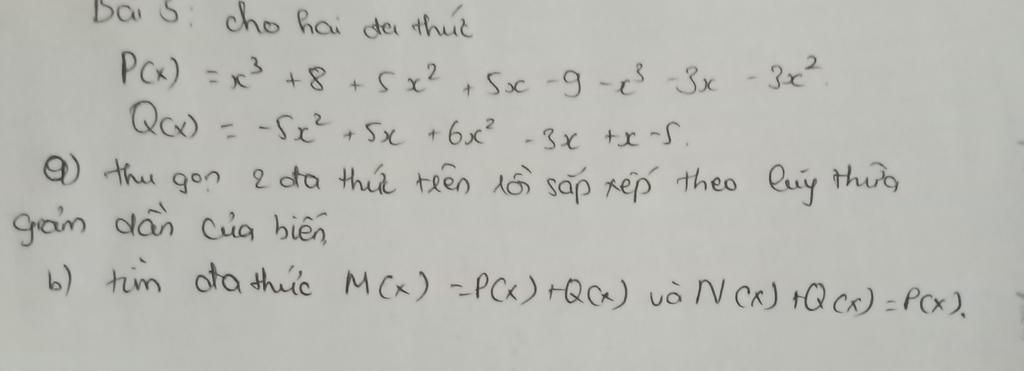 Bài 5: cho hai đa thức
P(x) = x³ + 8 + 5x² + 5x - 9 - x³ - 3x - 3x².
Q(x) = -5x² + 5x + 6x² - 3x + x - 5.
a) thu gọn 2 đa thức trên rồi sắp xếp theo lũy thừa
giảm dần của biến
b) tìm đa thức M(x) = P(x) + Q(x) và N(x) + Q(x) = P(x).